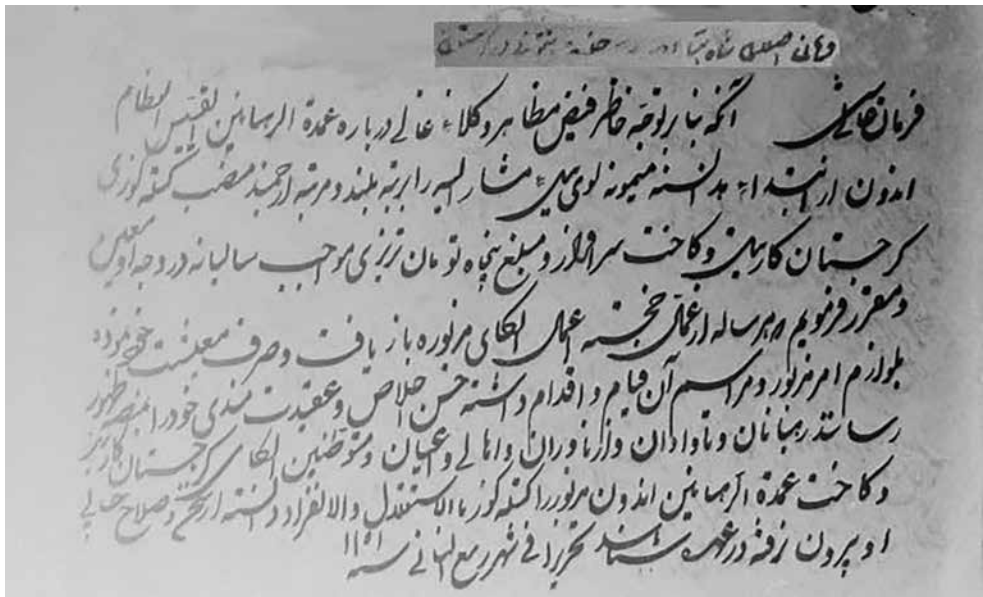 فرمان عالی آنکه بنابر توجه خاطر فیض مظاهر وکلاء عالی درباره عمدة الرهبانین القسیس العظام
اندون از ابتداء هذه السنه میمونه لوی ئیل مشار الیه را برتبه بلند و مرتبه ارجمند منصب کتنه کوزی
کرجستان کارتیل و کاخت سرافراز و مبلغ پنجاه تومان تبریزی مواجب سالیانه در وجه او معین
و مقرر فرمودیم هر ساله از عمال خجسته اعمال الکای مزبوره بازیافت و صرف معیشت خود نموده
بلوازم امر مزبور و مراسم آن قیام و اقدام داشته حسن اخلاص و عقیدت مندی خود را بمنصه ظهور
رساند رهبانان و تاوادان و ازناوران و اهالی و اعیان و متوطنین الکای کرجستان کارتیل
و کاخت عمدة الرهبانین اندون مزبور را کتنه کوز بالاستقلال والانفراد دانسته از سخن و صلاح حسابی
او بیرون نرفته در عهده شناسند تحریرا فی شهر ربیع الثانی سنه